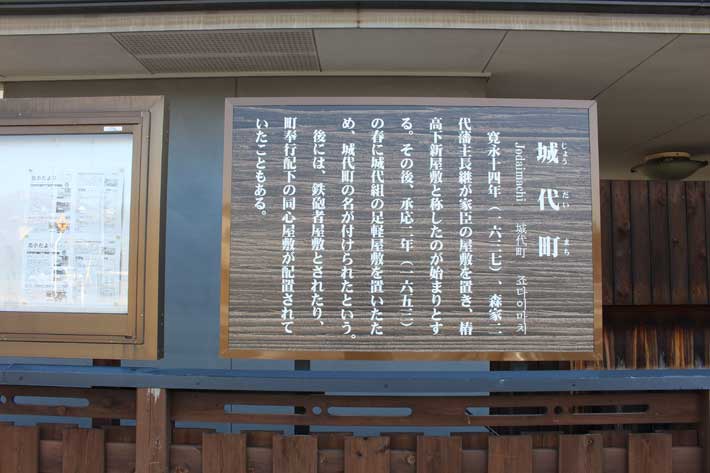 じょう だい まち
城代町
Jodaimachi 城代町 죠다이마치
寛永十四年（一六三七）、森家二
代藩主長継が家臣の屋敷を置き、椿
高下新屋敷と称したのが始まりとす
る。その後、承応二年（一六五三）
の春に城代組の足軽屋敷を置いたた
め、城代町の名が付けられたという。
後には、鉄砲者屋敷とされたり、
町奉行配下の同心屋敷が配置されて
いたこともある。